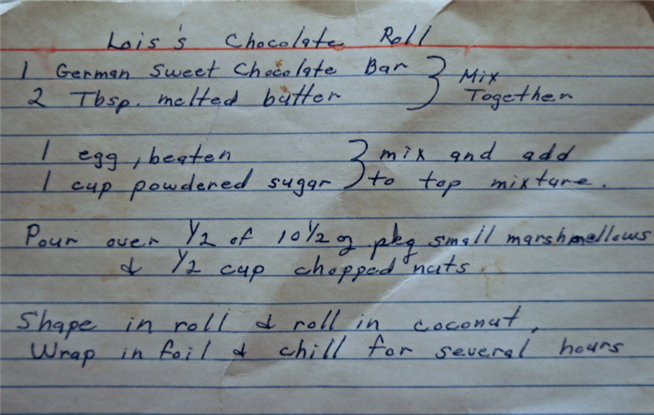 Lois's Chocolate Roll
1 German Sweet Chocolate Bar } Mix
2 Tbsp. melted butter } Together
1 egg, beaten } mix and add
1 cup powdered sugar } to top mixture.
Pour over 1/2 of 10 1/2 oz pkg small marshmellows
& 1/2 cup chopped nuts.
Shape in roll & roll in coconut.
Wrap in foil & chill for several hours